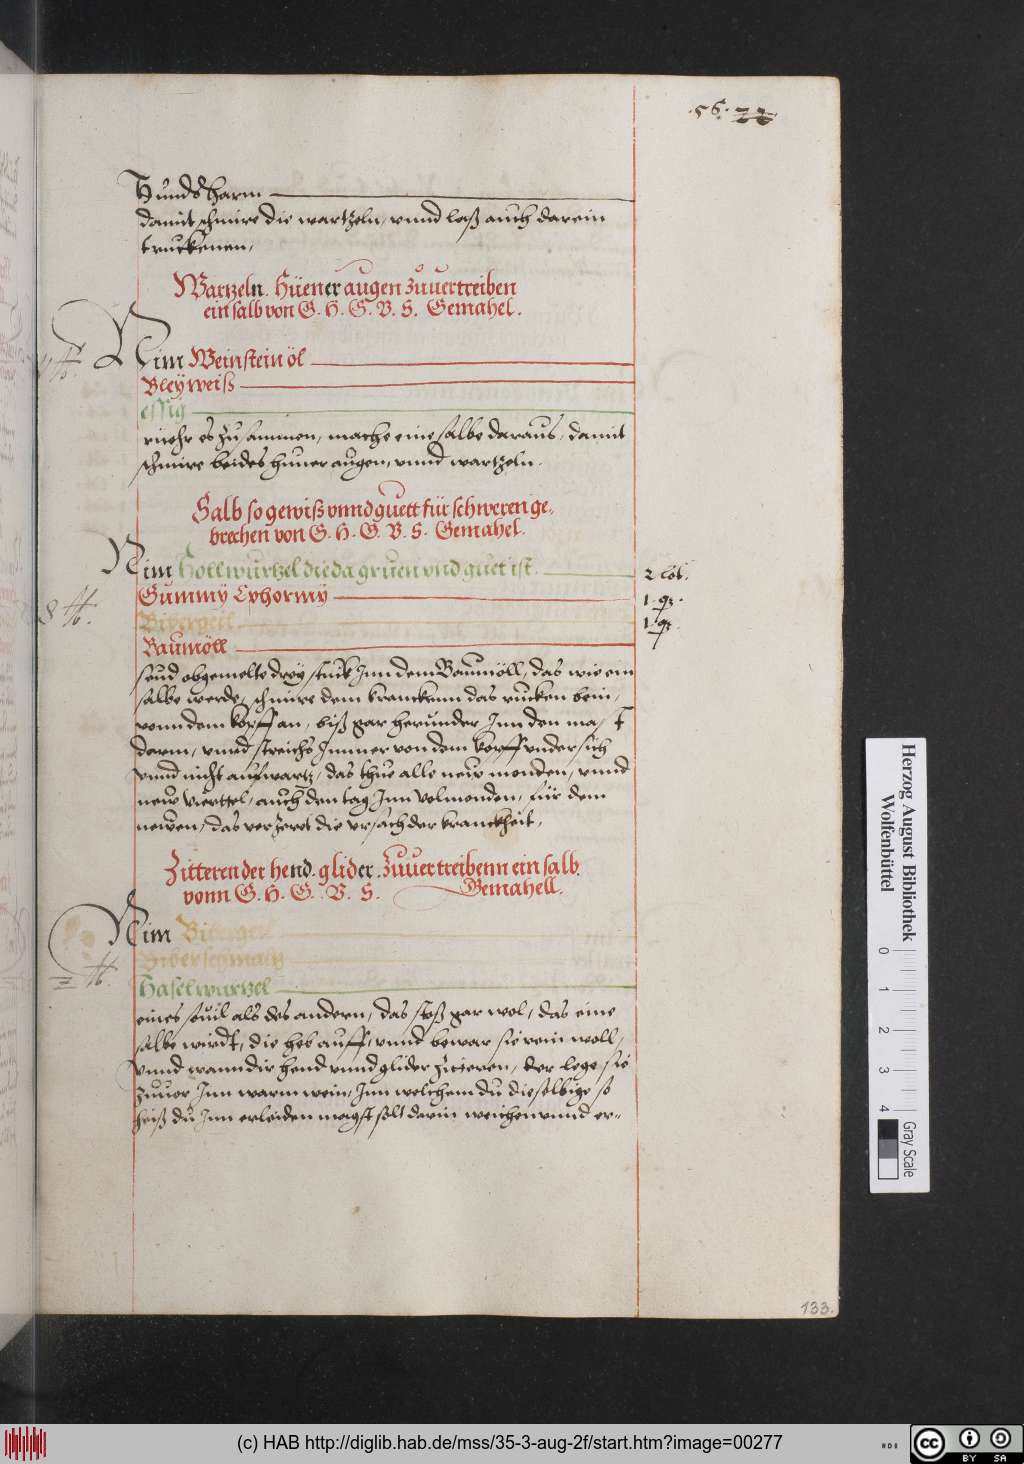 .56.
Hunds harm
damit schmire die wartzeln, vnnd laß auch darein
truckenen,
Wartzeln. Hüener augen zuuertreiben
ein salb von G. H. G. V. S. Gemahel.
Nim Weinstein öl
Bleyweiß
essig
ruehr es zusammen, mache eine salbe daraus, damit
schmire beides huner augen, vnnd wartzeln.
Salb so gewiß vnnd guett für schweren ge-
brechen von G. H. G. V. S. Gemahel.
Nim Hollwurtzel die da gruen vnd guet ist. 2 lot.
Gummy Ephormy 1. q.
Bibergeil 1. q.
Baumöll
seud obgemelte drey stuck Inn dem Baumöll, das wie ein
salbe werde, schmire dem krancken das rucken bein,
vonn dem kopff an, biß gar herunder Inn den ma/
darm, vnnd streichs Immer von dem kopff vnder sich
vnnd nicht aufwartz, das thue alle new monden, vnnd
new viertel, auch den tag Inn Volmonden, für dem
newen, das verzeret die vrsach der kranckheit,
Zitteren der hend. glider. Zuuertreibenn ein salb
vonn G. H. G. V. S. Gemahell.
Nim Bibergeil
Biberschmaltz
Haselwurtzel
eines souil als des andern, das stoß gar wol, das eine
salbe wirdt, die heb auff, vnnd bewar sie rein woll,
vnnd wann dir hend vnnd glider zitteren, der lege sie
zuuor Inn warm wein, Inn welchem du dieselbige so
heiß du Inn erleiden magst solt darin weichen vnnd er-
133.
Herzog August Bibliothek
Wolfenbüttel
0 1 2 3 4
Gray Scale
(c) HAB http://diglib.hab.de/mss/35-3-aug-2f/start.htm?image=00277
cc BY SA